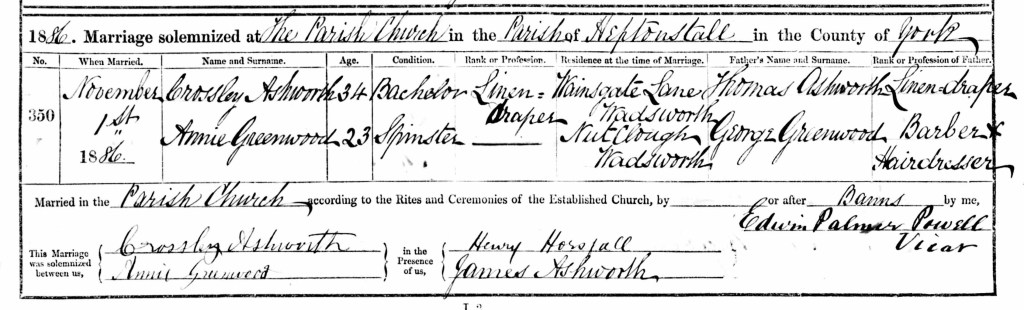 1886. Marriage solemnized at The Parish Church in the Parish of Heptonstall in the County of York
No. When Married. Name and Surname. Age. Condition. Rank or Profession. Residence at the time of Marriage. Father's Name and Surname. Rank or Profession of Father.
350 November 1st 1886.
Crossley Ashworth 34 Bachelor Linen=draper Wainsgate Lane Wadsworth Thomas Ashworth Linen-draper
Annie Greenwood 23 Spinster — Nut Clough Wadsworth George Greenwood Barber & Hairdresser
Married in the Parish Church according to the Rites and Ceremonies of the Established Church, by or after Banns by me,
Edwin Palmer Powell
Vicar
This Marriage was solemnized between us, Crossley Ashworth
Annie Greenwood
in the Presence of us, Henry Horsfall
James Ashworth